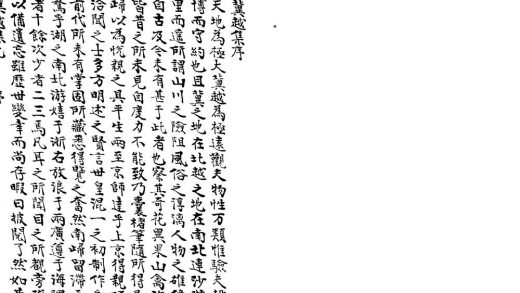 冀越集序
天地為極大冀越為極遠觀夫物性万類惟驗夫
博而守約也且冀之地在北越之地在南北連沙
里而遥所謂山川之險阻風俗之淳漓人物之雄
自古及今未有甚于此者也察其奇花異果山禽
皆昔之所未見自度力不能致乃囊楮筆隨所得
歸以為悦親之具平生兩至京師達乎上京得親
洽聞之士多方明述之賢言世皇混一之初制作
前代所未有掌固所藏悉得覽之奮然南歸留滯
鶩乎湖之南北游嬉于浙右放浪于兩廣遵于海
者十餘次少者二三馬凡耳之所聞目之所覩旁
以備遺忘雖歷世變幸而尚存暇日披閲了然如